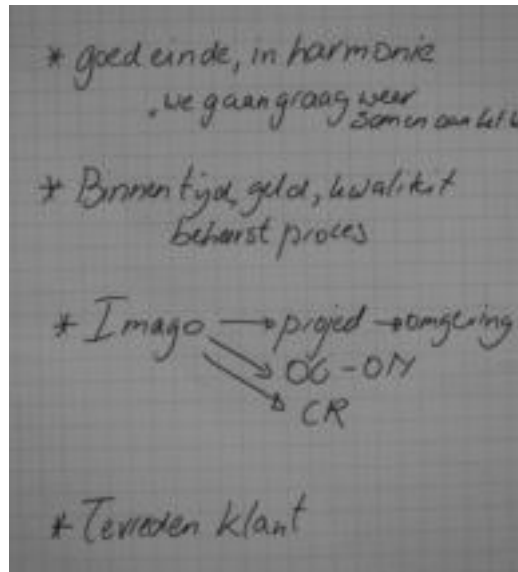 * goed einde, in harmonie
. we gaan graag weer
samen aan het
* Binnen tijd, geld, kwaliteit
beheerst proces
* Imago → project → omgeving
→ OG - ON
→ CR
* Tevreden klant